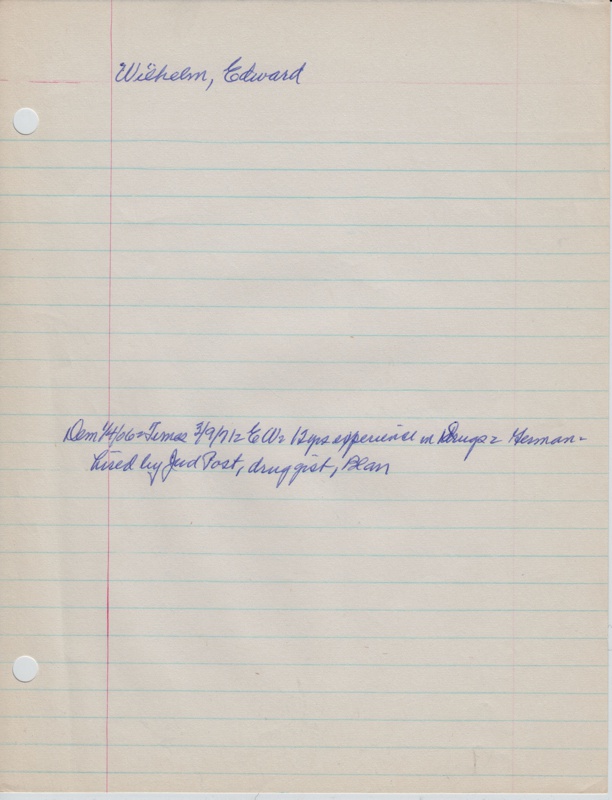 Wilhelm, Edward
Dem 1/4/06 = Times 3/9/71 = EW = 12 yrs experience in Drugs = German =
hired by Jud Post, druggist, Blan